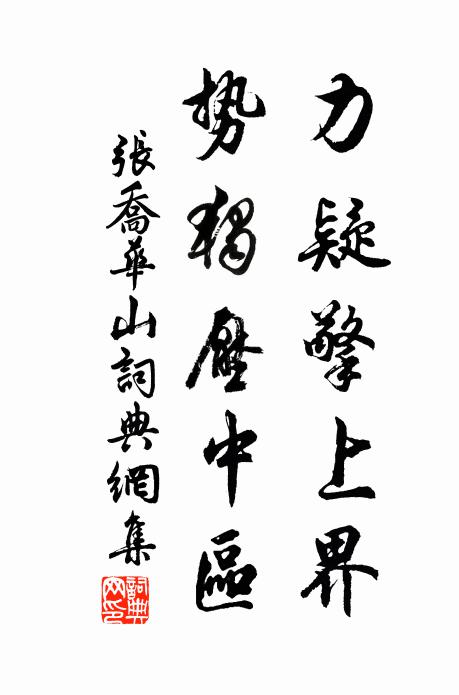 力疑擎上界
势獨壓中區
張喬華山詞典網集
詞典